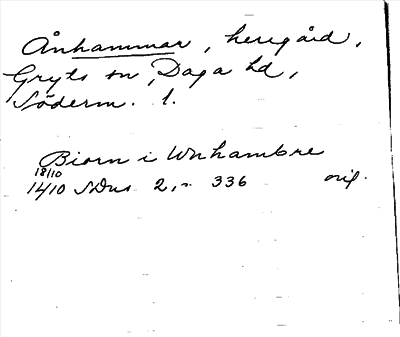 Ånhammar, herrgård,
Gryts sn, Daga hd,
Söderm. l.
Biorn i Wnhambre
18/10
1410 SDns 2, s. 336 orig.